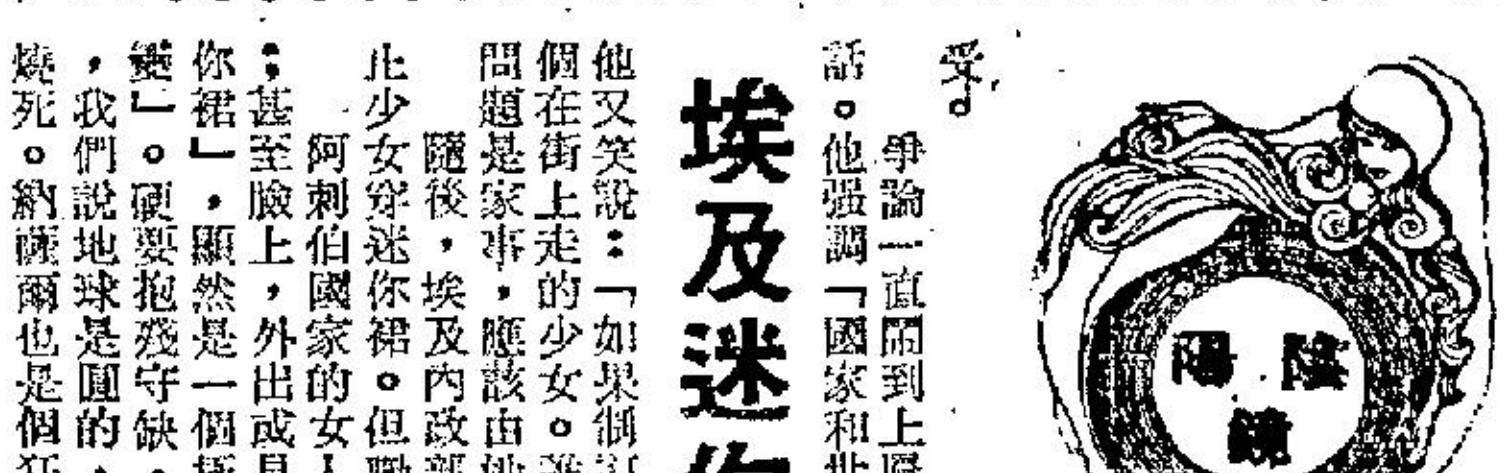 陰陽鏡
受。
爭論一直鬧到上
話。他强調「國家和
埃及迷你
他又笑說:「如果制
個在街上走的少女。
問題是家事,應該由
隨後,埃及內政部
止少女穿迷你裙。但
阿刺伯國家的女人
:甚至臉上,外出或
你裙」,顯然是一個
變」。硬要抱殘守缺。
,我們說地球是圓的,
燒死。納薩爾也是個